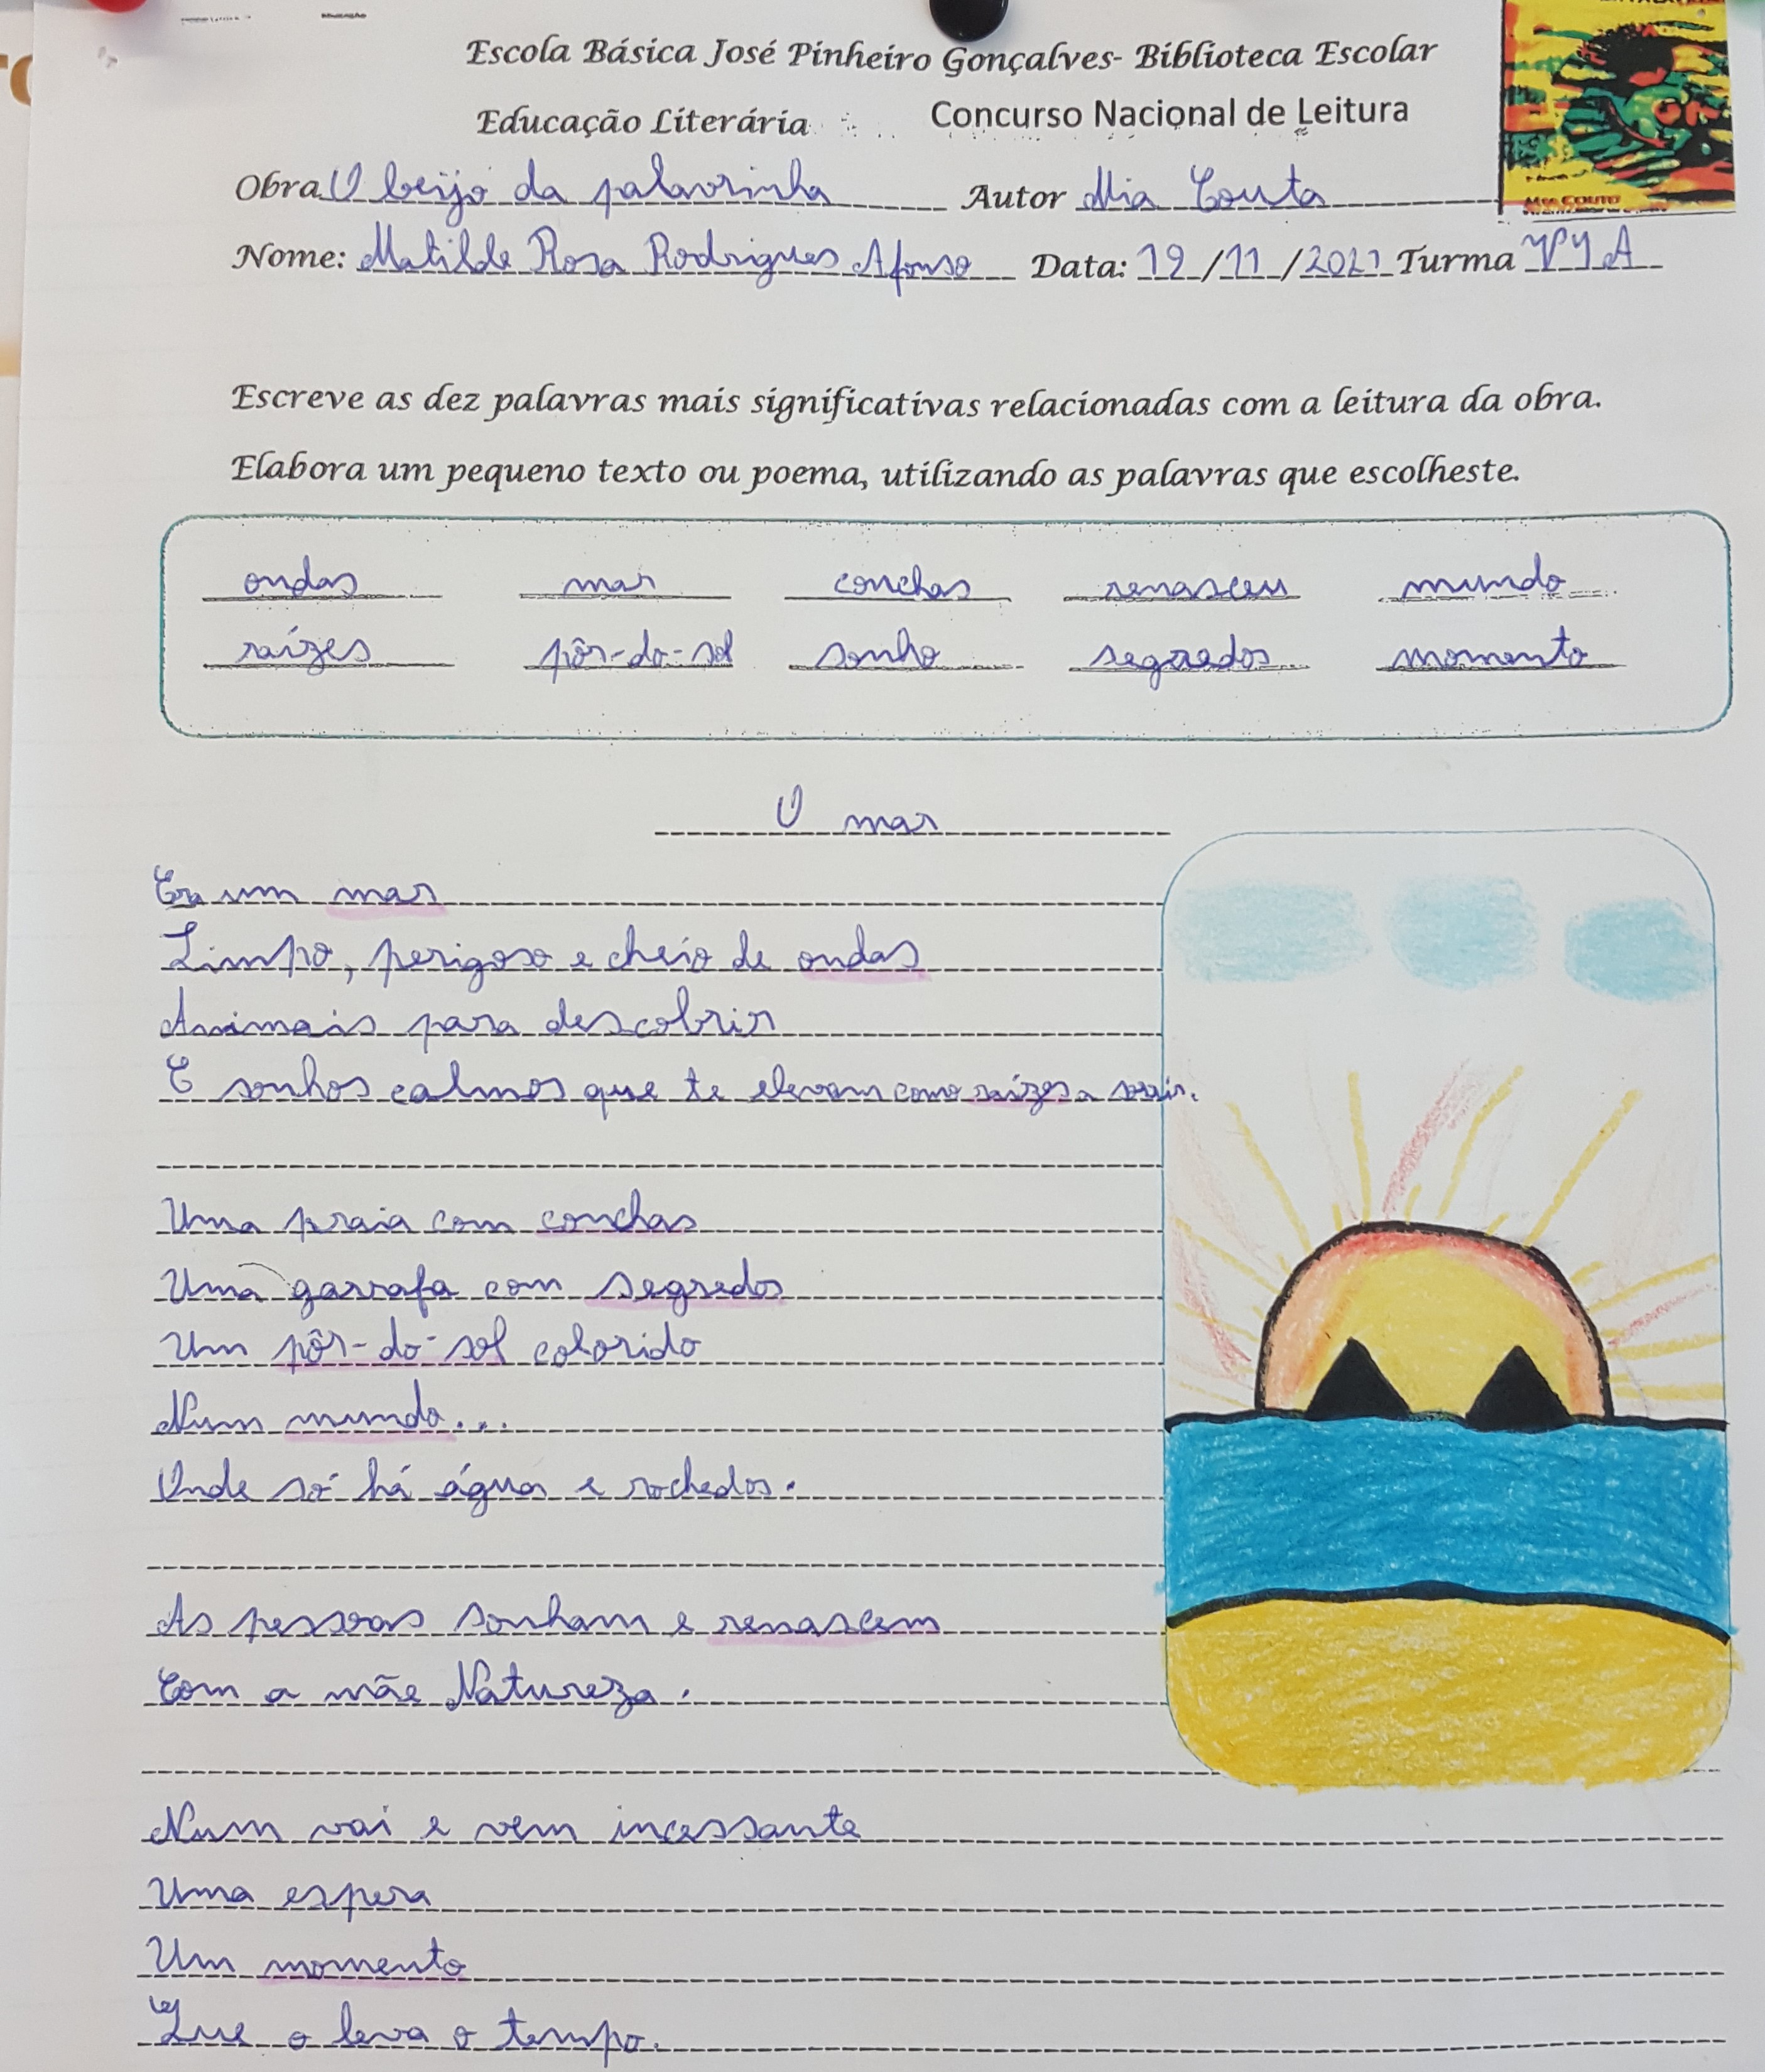 Escola Básica José Pinheiro Gonçalves- Biblioteca Escolar
Educação Literária Concurso Nacional de Leitura
Obra O beijo da palavrinha Autor Mia Couto
Nome: Matilde Rosa Rodrigues Afonso Data: 19/11/2021 Turma VPYA
MIA COUTO
Escreve as dez palavras mais significativas relacionadas com a leitura da obra.
Elabora um pequeno texto ou poema, utilizando as palavras que escolheste.
ondas mar conchas renasceu mundo
raízes pôr-do-sol sonho segredos momento
O mar
Era um mar
Limpo, perigoso e cheio de ondas
Animais para descobrir
E sonhos calmos que te elevam como raízes a sorrir.
Uma praia com conchas
Uma garrafa com segredos
Um pôr-do-sol colorido
Num mundo...
Onde só há água e rochedos.
As pessoas sonham e renascem
Com a mãe Natureza.
Num vai e vem incessante
Uma espera
Um momento
Que o leva o tempo.